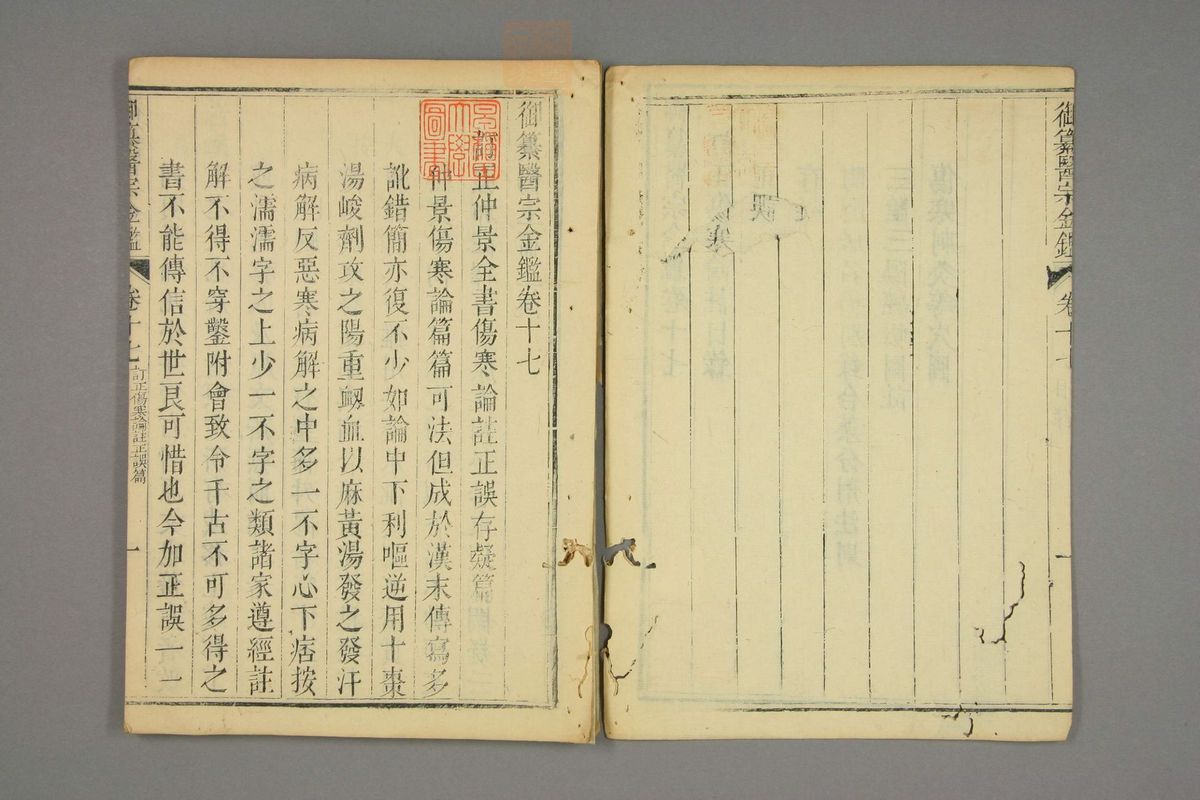 御纂醫宗金鑑
卷十七
一
御纂醫宗金鑑卷十七
訂正仲景全書傷寒論註正誤存疑篇
仲景傷寒論篇篇可法但成於漢末傳寫多
訛錯簡亦復不少如論中下利嘔逆用十棗
湯峻劑攻之陽重衂血以麻黃湯發之發汗
病解反惡寒病解之中多一不字心下痞按
之濡濡字之上少一不字之類諸家遵經註
解不得不穿鑿附會致令千古不可多得之
書不能傳信於世良可惜也今加正誤一一
御纂醫宗金鑑
卷十七
訂正傷寒論註正誤篇
一